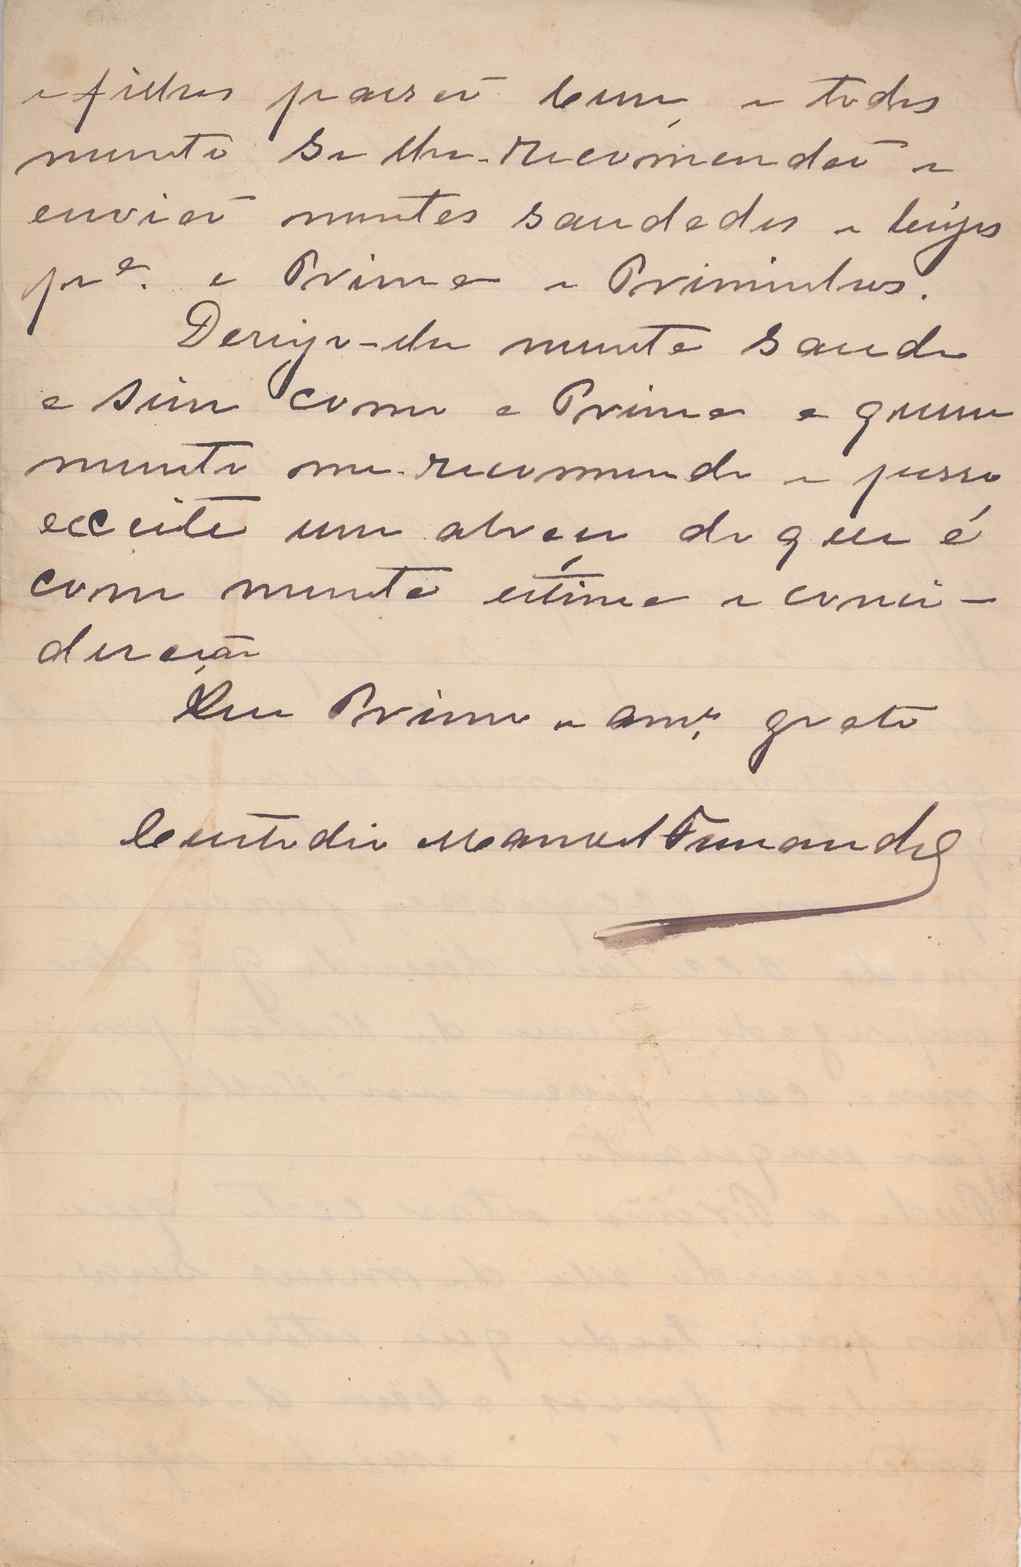 e filhos passão bem, e todos
munto se lhe-recomendão e
envião muntas saudades e beijos
pr.ª a Prima e Priminhos.
Deseijo-lhe munta saude
a sim como a Prima a quem
munto me-recomende e posso
acceite um abraço de quem é
com munta estima e conci-
deração
Seu Primo e am.º grato
Custodio Manoel Fernandes